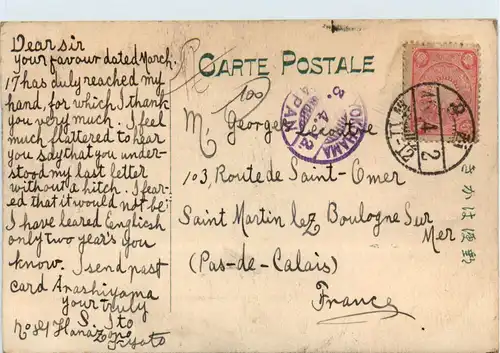 Dear sir
your favour dated March.
17 has duly reached my
hand, for which I thank
you very much. I feel
much flattered to hear
you say that you under-
stood my last letter
without a hitch. I fear-
ed that it would not be
I have leared Engliesh
only two year's you
know. I send past
card Arashiyama
your truly
S. Ito
No 84 Hanazono
Kyoto
CARTE POSTALE
100
YOKOHAMA
JAPAN
M. George
103, Route de Saint-Omer
Saint Martin lez Boulogne Sur
Mer
(Pas-de-Calais)
France
4
2